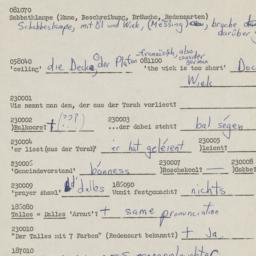 081070
Sabbathlampe (Name, Beschreibung, Bräuche, Redensarten)
Schabbeslampe, mit Öl und Wiek, (Messing)
darüber
französisch, also
consider
german
058040 'ceiling' die Decke, der Plafon 081100 'the wick is too short' Doc
Wiek
230001
Wie nennt man den, der aus der Torah vorliest?
230002 Balkoore? + (???) 230003 ...der dabei steht? bal segen
230004 'er liest(aus der Torah)' er hat geleient 230005 leient?
230006 'Gemeindevorstand' bonness 230007 Roschekool? — 230008 Gabbe
230009 'prayer shawl' dalles 186090 Womit festgemacht? nichts
186080
Talles = Dalles 'Armut'? + same pronunciation
230010
"Der Talles mit 7 Farben" (Redensart bekannt?) + Ja
187010